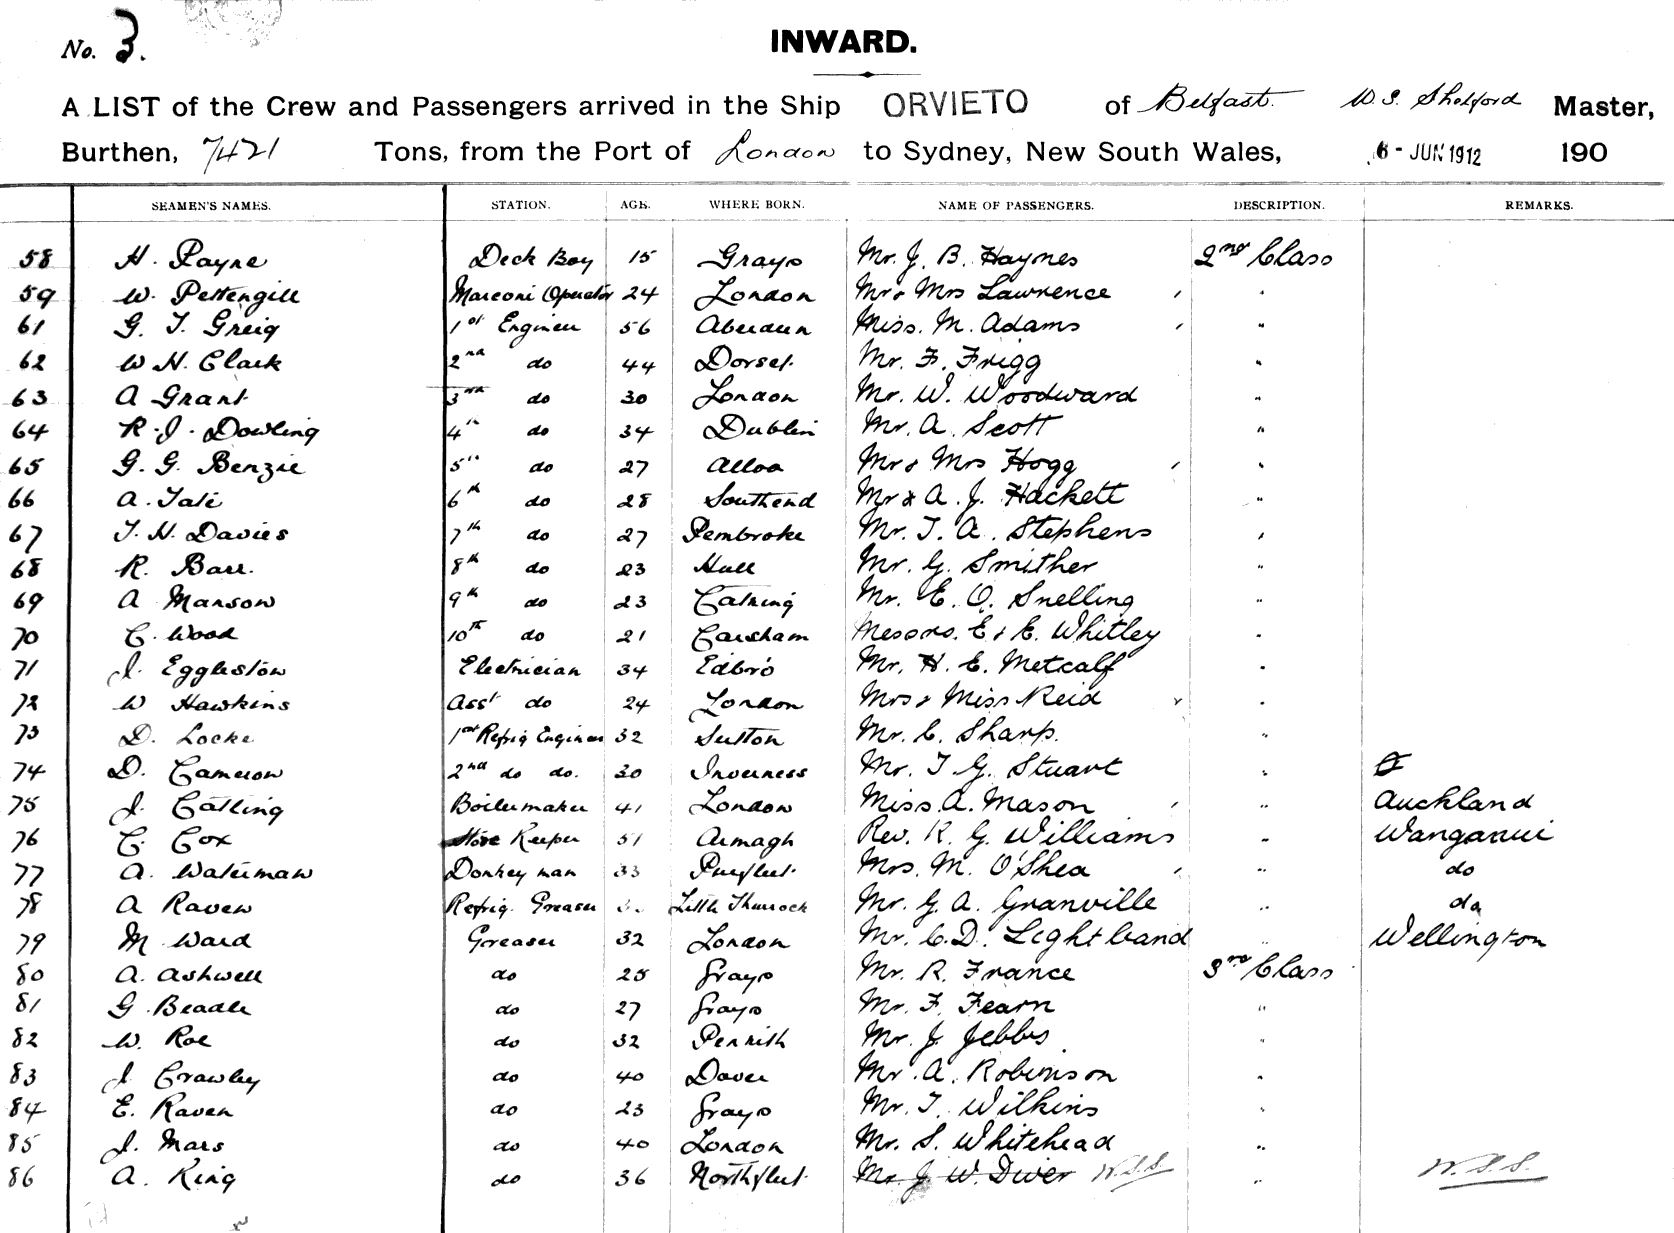 No. 3.
INWARD.
A LIST of the Crew and Passengers arrived in the Ship ORVIETO of Belfast. W S Shelford Master,
Burthen, 7421 Tons, from the Port of London to Sydney, New South Wales, 6 - JUN 1912 190
SEAMEN'S NAMES. STATION. AGE. WHERE BORN. NAME OF PASSENGERS. DESCRIPTION. REMARKS.
58 H. Payne Deck Boy 15 Grays Mr. J. B. Haynes 2nd Class
59 W. Pettengill Marconi Operator 24 London Mr & Mrs Lawrence "
61 G. T. Greig 1st Engineer 56 Aberdeen Miss. M. Adams "
62 W H. Clark 2nd do 44 Dorset. Mr. F. Frigg "
63 A Grant 3rd do 30 London Mr. W. Woodward "
64 R. J. Dowling 4th do 34 Dublin Mr. A. Scott "
65 G. G. Benzie 5th do 27 Alloa Mr & Mrs Hogg "
66 A. Tate 6th do 28 Southend Mr & A. J. Hackett "
67 T. H. Davies 7th do 27 Pembroke Mr. T. A. Stephens "
68 R. Barr. 8th do 23 Hull Mr. G. Smither "
69 A Manson 9th do 23 Mr. E. O. Snelling "
70 C. Wood 10th do 21 Messrs. E & E. Whitley "
71 J. Eggleston Electrician 34 Edbro Mr. H. E. Metcalf "
72 W Hawkins Asst do 24 London Mrs & Miss Reid "
73 D. Locke 1st Refrig Engineer 32 Sutton Mr. C. Sharp. "
74 D. Cameron 2nd do do. 30 Inverness Mr. T. G. Stuart "
75 J. Catling Boilermaker 41 London Miss. A. Mason " Auckland
76 C. Cox Store Keeper 51 Armagh Rev. R. G. Williams " Wanganui
77 A. Waterman Donkey man 33 Purfleet. Mrs. M. O'Shea " do
78 A Raven Refrig. Greaser Little Thurrock Mr. G. A. Granville " do
79 M Ward Greaser 32 London Mr. C. D. Lightband " Wellington
80 A. Ashwell do 25 Grays Mr. R. France 3rd Class
81 G. Beadle do 27 Grays Mr. F. Fearn "
82 W. Roe do 32 Penrith Mr. J. Jebbs "
83 J Crawley do 40 Dover Mr. A. Robinson "
84 E. Raven do 23 Grays Mr. T. Wilkins "
85 J. Mars do 40 London Mr. S. Whitehead "
86 A. King do 36 Northfleet. Mr. J. W. Diver W.S.S. " W.S.S.